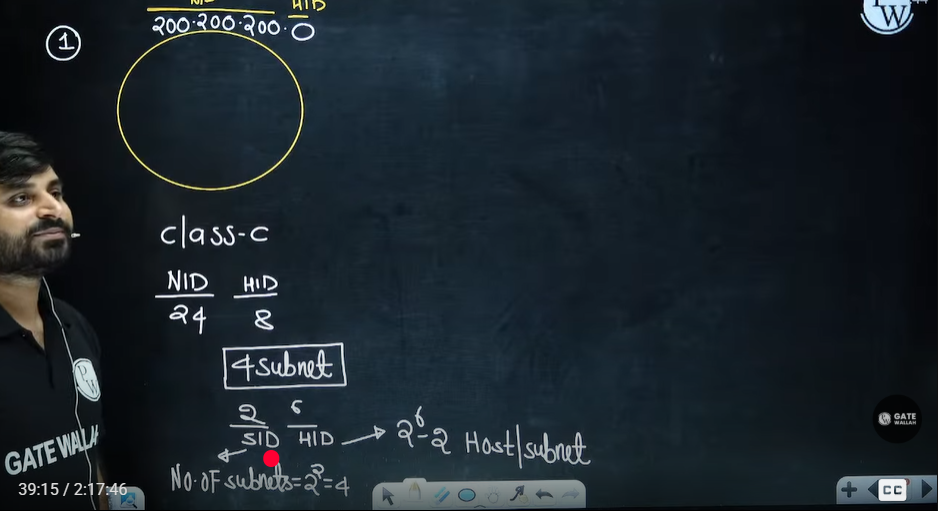 NID HID
200.200.200.0
1
class-c
NID HID
24 8
4 subnet
2 6
SID HID → 2^6-2 Host/subnet
No. of subnets = 2^2 = 4
GATE WALLAH
GATE WALLAH
39:15 / 2:17:46
CC